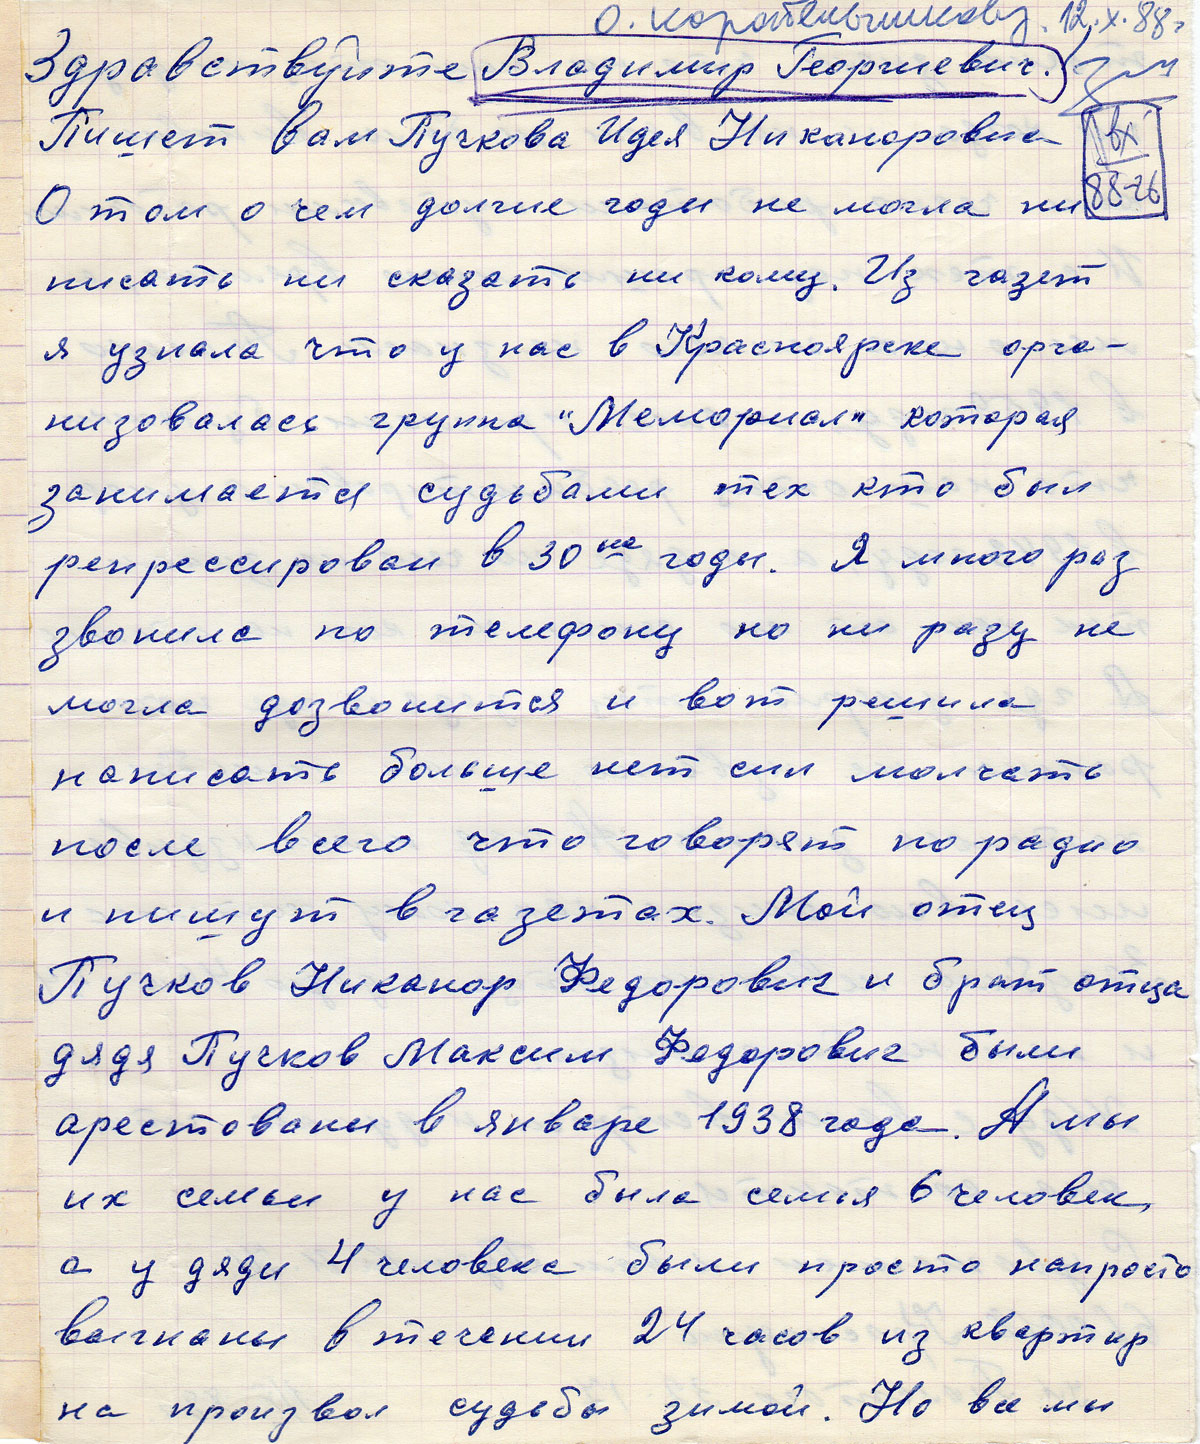 О. Коротельчикову. 12.X.88г
Здравствуйте Владимир Георгиевич.
Пишет Вам Пучкова Идея Никаноровна
вх
88-26
О том о чем долгие годы не могла ни
писать ни сказать ни кому. Из газет
я узнала что у нас в Красноярске орга-
низовалась группа "Мемориал" которая
занимается судьбами тех кто был
репрессирован в 30ые годы. Я много раз
звонила по телефону но ни разу не
могла дозвонится и вот решила
написать больше нет сил молчать
после всего что говорят по радио
и пишут в газетах. Мой отец
Пучков Никанор Федорович и брат отца
дядя Пучков Максим Федорович были
арестованы в январе 1938 года. А мы
их семьи у нас была семья 6 человек,
а у дяди 4 человека были просто напросто
выгнаны в течении 24 часов из квартир
на произвол судьбы зимой. Но все мы